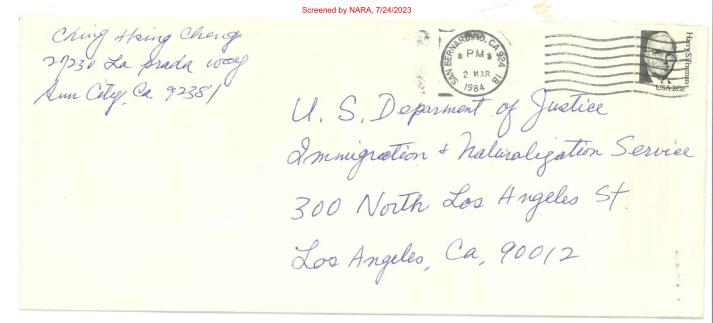 Screened by NARA, 7/24/2023
Ching Hsing Cheng
27230 La prada way
Sun City, Ca. 92381
SAN BERNARDINO, CA 924
PM
2 MAR
1984
18
Harry S. Truman
USA 20c
U. S. Deparment of Justice
Immigration & Naturalization Service
300 North Los Angeles St.
Los Angeles, Ca, 90012